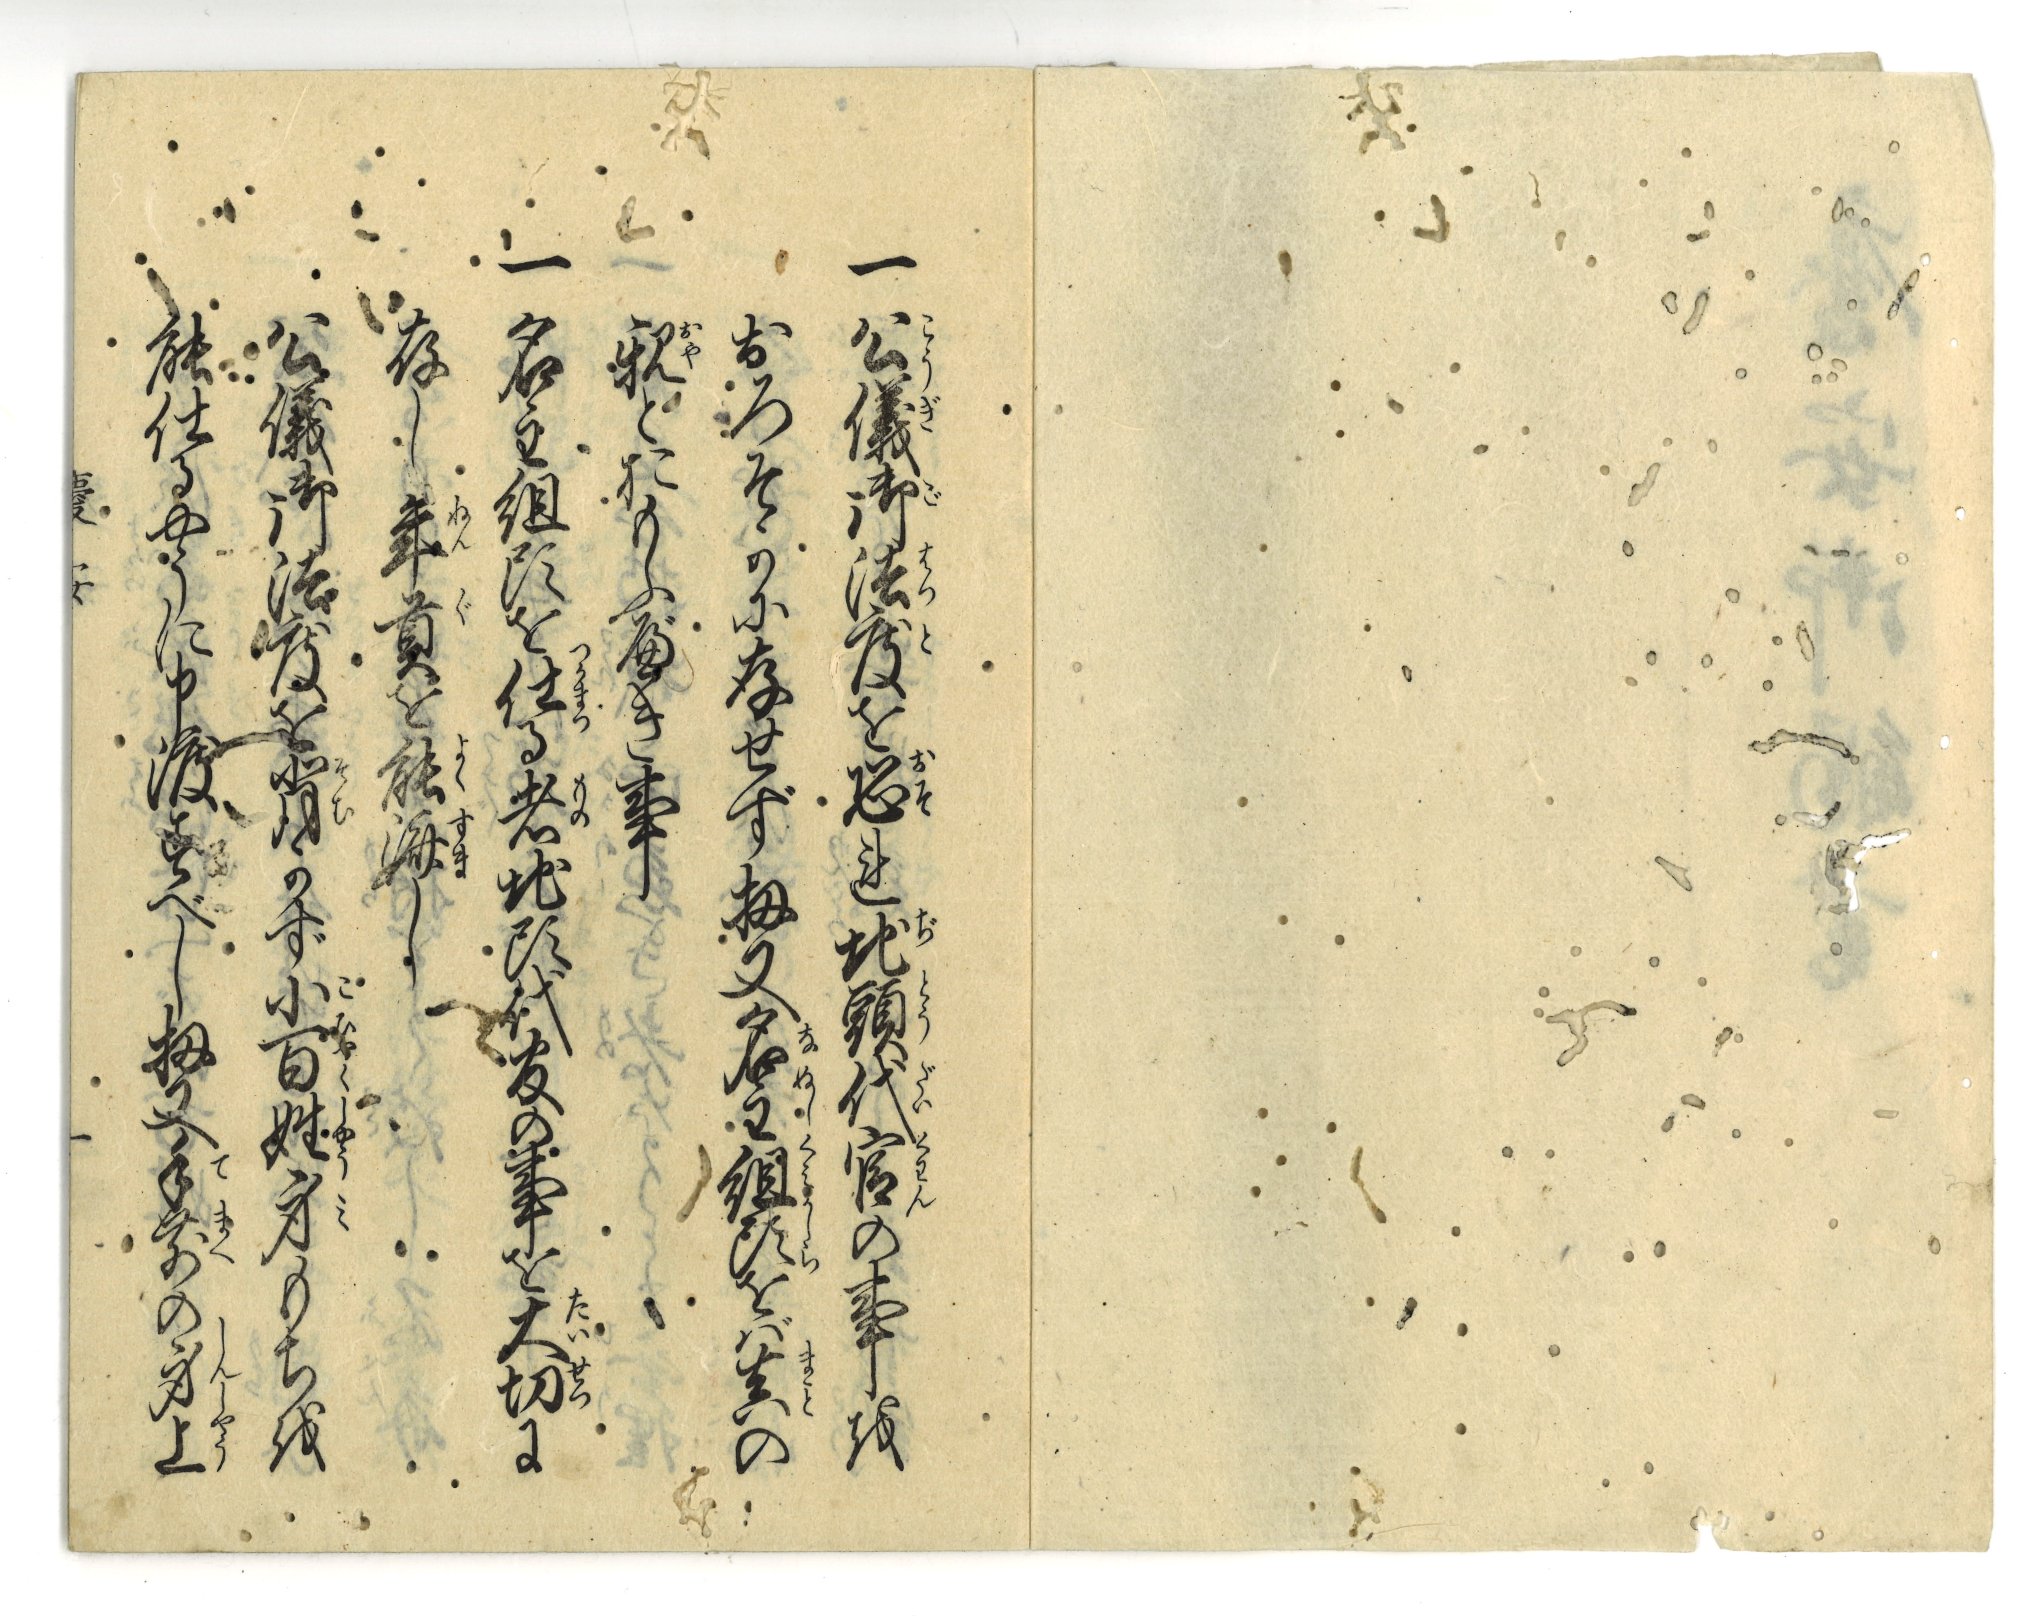 一公儀御法度を恐れ地頭代官の事を
おろそかに存せず扨又名主組頭をば真の
親とおもふ遍き事
一名主組頭を仕る者地頭代官の事を大切に
存し年貢を能済し
公儀御法度を背かず小百姓身もちを
能仕るやうに申渡すべし扨又手前の身上
慶安
一